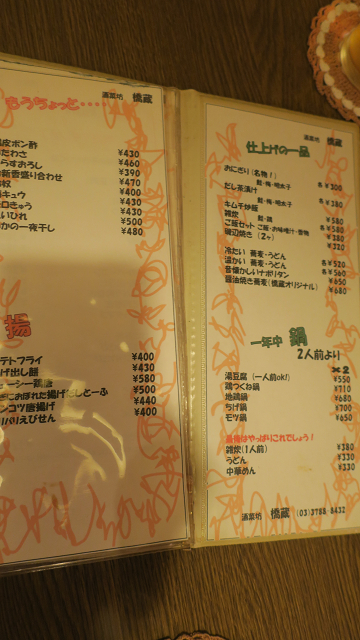 酒菜坊 橋蔵
もうちょっと・・・・
皮ポン酢 ¥430
たわさ ¥460
らすおろし ¥390
新香盛り合わせ ¥470
奴 ¥400
キュウ ¥430
口きゅう ¥430
いひれ ¥500
かの一夜干し ¥480
揚
テトフライ ¥400
げ出し餅 ¥430
ーシー鶏唐 ¥580
におぼれた揚げだしとーふ ¥500
ンコツ唐揚げ ¥440
パリえびせん ¥400
酒菜坊 橋蔵
仕上げの一品
おにぎり(名物!)
鮭・梅・明太子 各¥300
だし茶漬け
鮭・梅・明太子 各¥380
キムチ炒飯 ¥580
雑炊 鮭・鶏 各¥580
ご飯セット ご飯・お味噌汁・香物 ¥380
磯辺焼き(2ヶ) ¥320
冷たい 蕎麦・うどん 各¥520
温かい 蕎麦・うどん 各¥560
昔懐かしいナポリタン ¥650
醤油焼き蕎麦(橋蔵オリジナル) ¥680
一年中 鍋
2人前より
×2
湯豆腐 (一人前ok!) ¥550
鶏つくね鍋 ¥710
地鶏鍋 ¥680
ちげ鍋 ¥700
モツ鍋 ¥650
最後はやっぱりこれでしょう!
雑炊(1人前) ¥380
うどん ¥330
中華めん ¥330
酒菜坊 橋蔵 (03)3788-8432